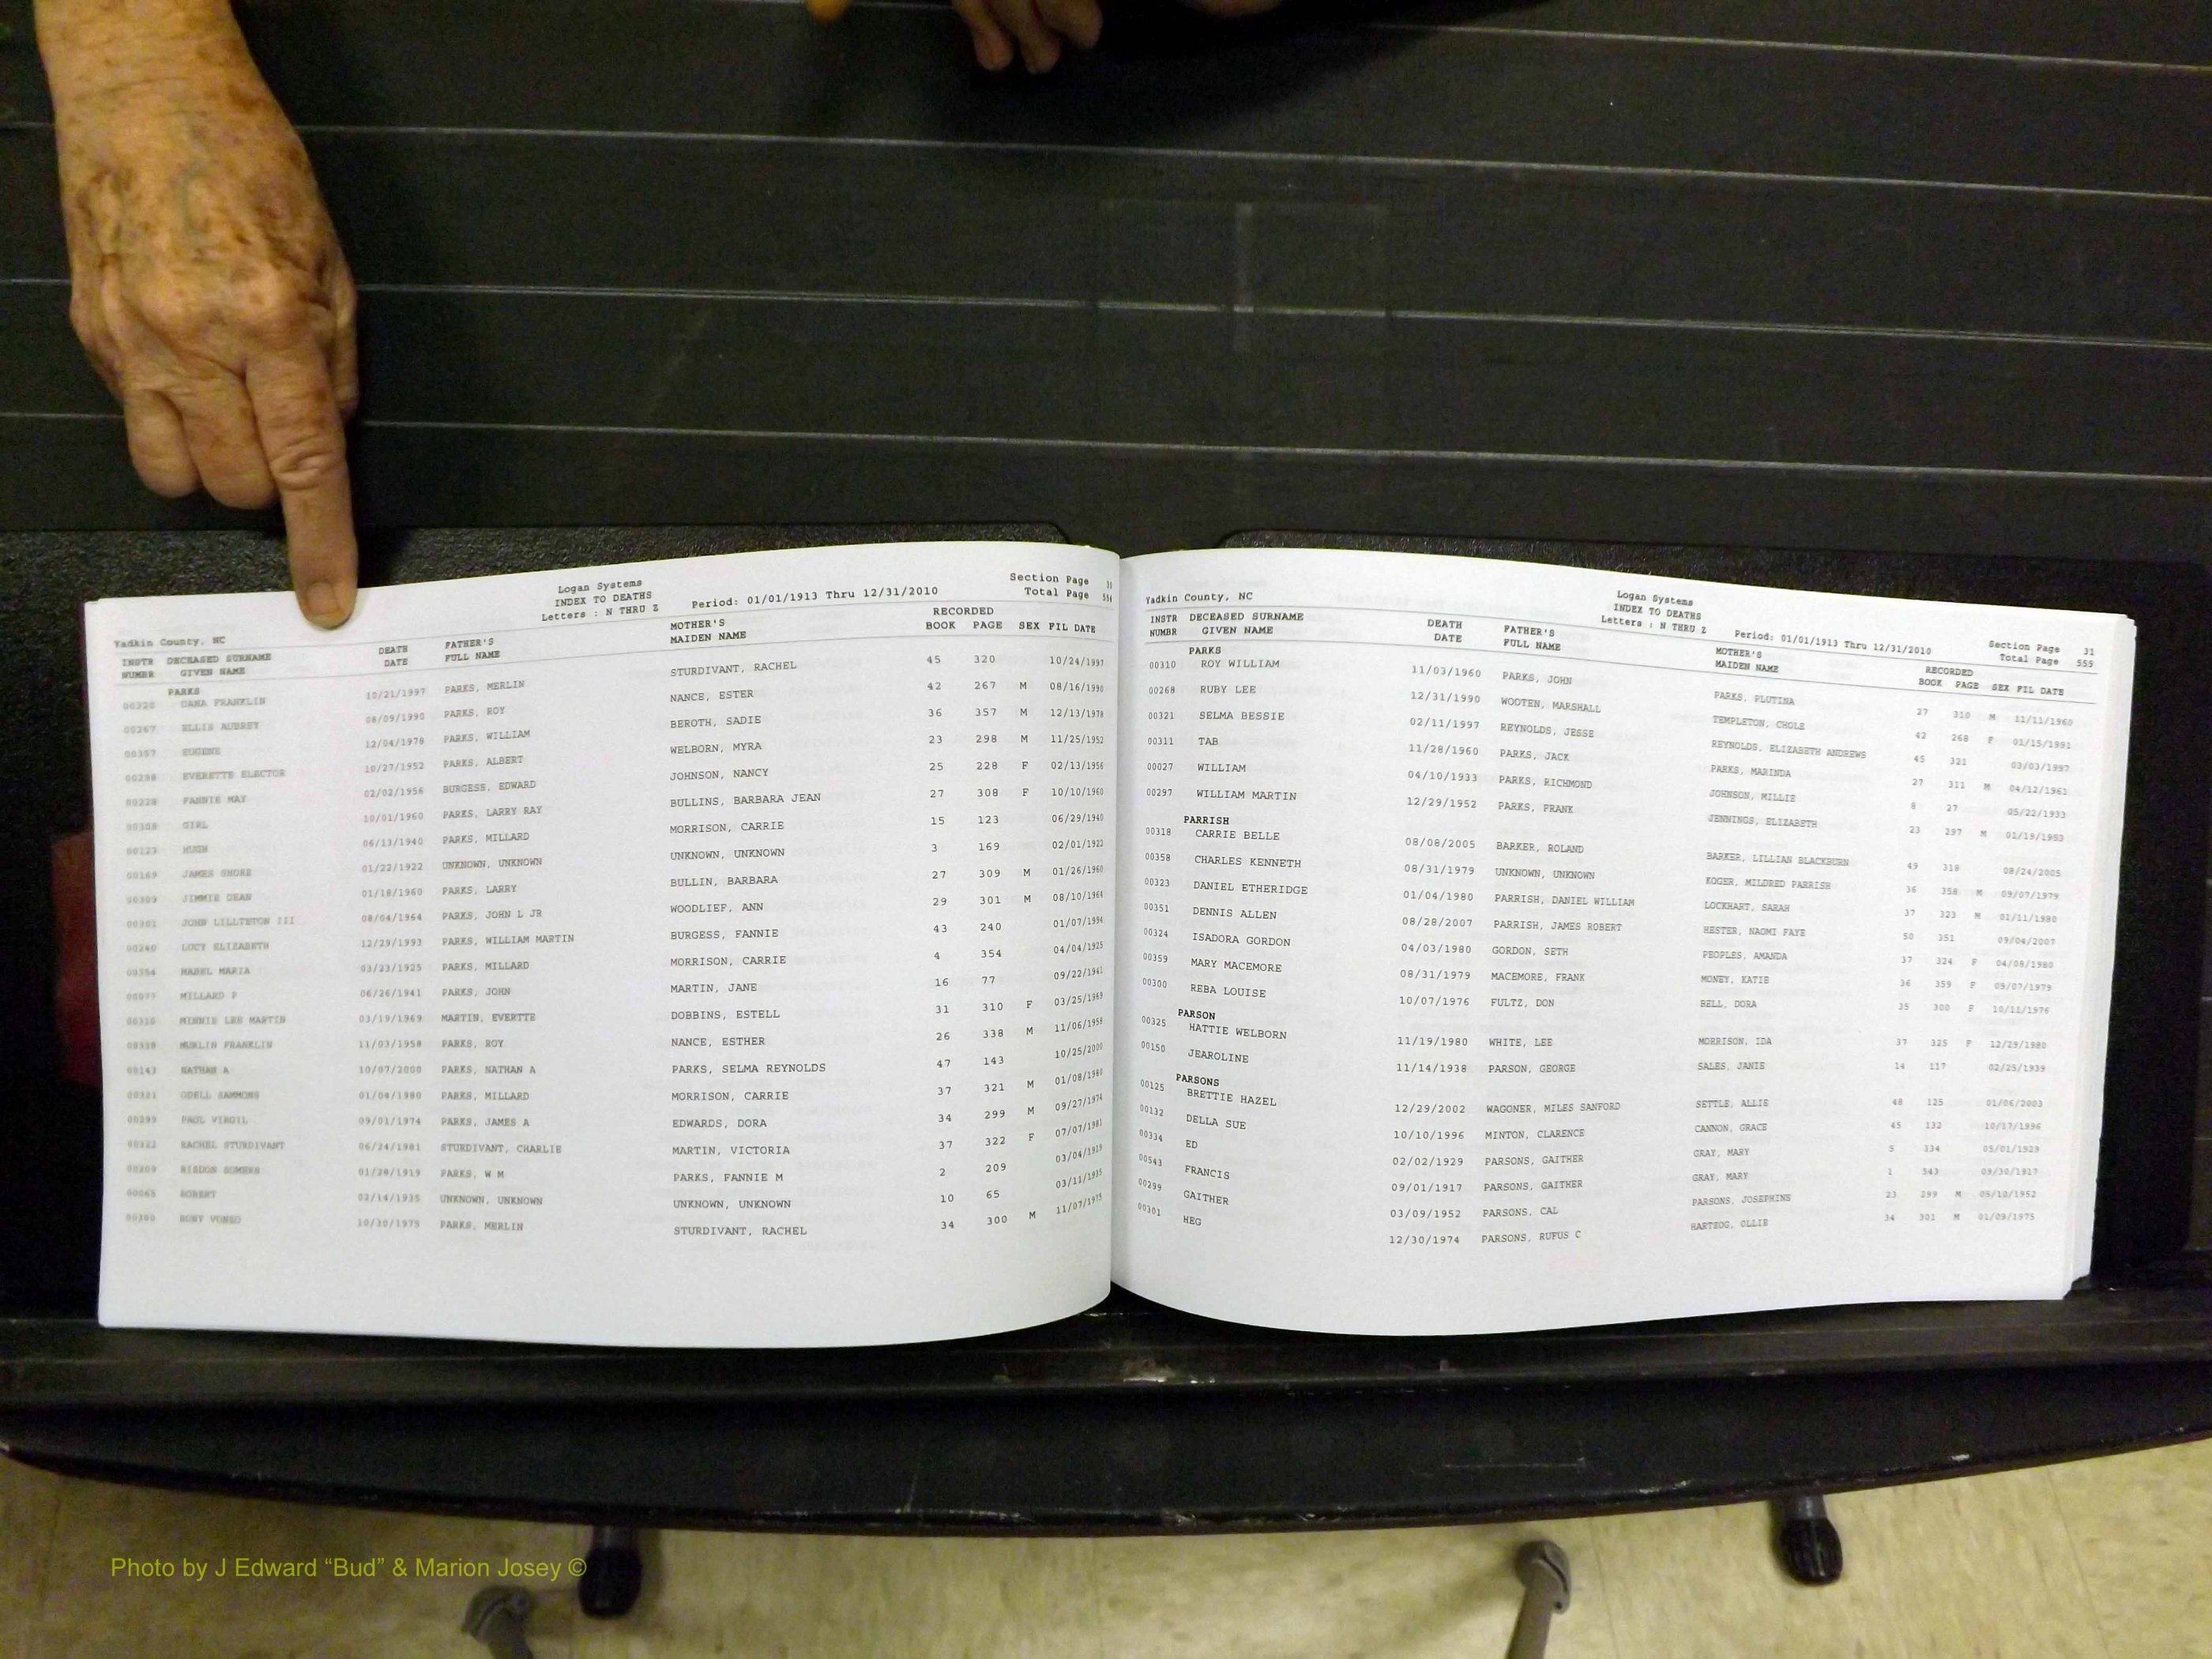 Logan Systems
INDEX TO DEATHS
Yadkin County, NC Letters : N THRU Z Period: 01/01/1913 Thru 12/31/2010 Section Page 31
Total Page 554
INSTR DECEASED SURNAME DEATH FATHER'S MOTHER'S RECORDED
NUMBR GIVEN NAME DATE FULL NAME MAIDEN NAME BOOK PAGE SEX FIL DATE
PARKS
00320 DANA FRANKLIN 10/21/1997 PARKS, MERLIN STURDIVANT, RACHEL 45 320 10/24/1997
00267 ELLIS AUBREY 08/09/1990 PARKS, ROY NANCE, ESTER 42 267 M 08/16/1990
00357 EUGENE 12/04/1978 PARKS, WILLIAM BEROTH, SADIE 36 357 M 12/13/1978
00298 EVERETTE ELECTOR 10/27/1952 PARKS, ALBERT WELBORN, MYRA 23 298 M 11/25/1952
00228 FANNIE MAY 02/02/1956 BURGESS, EDWARD JOHNSON, NANCY 25 228 F 02/13/1956
00308 GIRL 10/01/1960 PARKS, LARRY RAY BULLINS, BARBARA JEAN 27 308 F 10/10/1960
00123 HUGH 06/13/1940 PARKS, MILLARD MORRISON, CARRIE 15 123 06/29/1940
00169 JAMES SHORE 01/22/1922 UNKNOWN, UNKNOWN UNKNOWN, UNKNOWN 3 169 02/01/1922
00309 JIMMIE DEAN 01/18/1960 PARKS, LARRY BULLIN, BARBARA 27 309 M 01/26/1960
00301 JOHN LILLTETON III 08/04/1964 PARKS, JOHN L JR WOODLIEF, ANN 29 301 M 08/10/1964
00240 LUCY ELIZABETH 12/29/1993 PARKS, WILLIAM MARTIN BURGESS, FANNIE 43 240 01/07/1994
00354 MABEL MARIA 03/23/1925 PARKS, MILLARD MORRISON, CARRIE 4 354 04/04/1925
00077 MILLARD F 06/26/1941 PARKS, JOHN MARTIN, JANE 16 77 09/22/1941
00310 MINNIE LEE MARTIN 03/19/1969 MARTIN, EVERTTE DOBBINS, ESTELL 31 310 F 03/25/1969
00338 MERLIN FRANKLIN 11/03/1958 PARKS, ROY NANCE, ESTHER 26 338 M 11/06/1958
00143 NATHAN A 10/07/2000 PARKS, NATHAN A PARKS, SELMA REYNOLDS 47 143 10/25/2000
00321 ODELL SAMMONS 01/04/1980 PARKS, MILLARD MORRISON, CARRIE 37 321 M 01/08/1980
00299 PAUL VIRGIL 09/01/1974 PARKS, JAMES A EDWARDS, DORA 34 299 M 09/27/1974
00322 RACHEL STURDIVANT 06/24/1981 STURDIVANT, CHARLIE MARTIN, VICTORIA 37 322 F 07/07/1981
00209 RISDON SOMERS 01/28/1919 PARKS, W M PARKS, FANNIE M 2 209 03/04/1919
00065 ROBERT 02/14/1935 UNKNOWN, UNKNOWN UNKNOWN, UNKNOWN 10 65 03/11/1935
00300 RONY VONSO 10/30/1975 PARKS, MERLIN STURDIVANT, RACHEL 34 300 M 11/07/1975
Logan Systems
INDEX TO DEATHS
Yadkin County, NC Letters : N THRU Z Period: 01/01/1913 Thru 12/31/2010 Section Page 31
Total Page 555
INSTR DECEASED SURNAME DEATH FATHER'S MOTHER'S RECORDED
NUMBR GIVEN NAME DATE FULL NAME MAIDEN NAME BOOK PAGE SEX FIL DATE
PARKS
00310 ROY WILLIAM 11/03/1960 PARKS, JOHN PARKS, PLUTINA 27 310 M 11/11/1960
00268 RUBY LEE 12/31/1990 WOOTEN, MARSHALL TEMPLETON, CHOLE 42 268 F 01/15/1991
00321 SELMA BESSIE 02/11/1997 REYNOLDS, JESSE REYNOLDS, ELIZABETH ANDREWS 45 321 03/03/1997
00311 TAB 11/28/1960 PARKS, JACK PARKS, MARINDA 27 311 M 04/12/1961
00027 WILLIAM 04/10/1933 PARKS, RICHMOND JOHNSON, MILLIE 8 27 05/22/1933
00297 WILLIAM MARTIN 12/29/1952 PARKS, FRANK JENNINGS, ELIZABETH 23 297 M 01/19/1953
PARRISH
00318 CARRIE BELLE 08/08/2005 BARKER, ROLAND BARKER, LILLIAN BLACKBURN 49 318 08/24/2005
00358 CHARLES KENNETH 08/31/1979 UNKNOWN, UNKNOWN KOGER, MILDRED PARRISH 36 358 M 09/07/1979
00323 DANIEL ETHERIDGE 01/04/1980 PARRISH, DANIEL WILLIAM LOCKHART, SARAH 37 323 M 01/11/1980
00351 DENNIS ALLEN 08/28/2007 PARRISH, JAMES ROBERT HESTER, NAOMI FAYE 50 351 09/04/2007
00324 ISADORA GORDON 04/03/1980 GORDON, SETH PEOPLES, AMANDA 37 324 F 04/08/1980
00359 MARY MACEMORE 08/31/1979 MACEMORE, FRANK MONEY, KATIE 36 359 F 09/07/1979
00300 REBA LOUISE 10/07/1976 FULTZ, DON BELL, DORA 35 300 F 10/11/1976
PARSON
00325 HATTIE WELBORN 11/19/1980 WHITE, LEE MORRISON, IDA 37 325 F 12/29/1980
00150 JEAROLINE 11/14/1938 PARSON, GEORGE SALES, JANIE 14 117 02/25/1939
PARSONS
00125 BRETTIE HAZEL 12/29/2002 WAGONER, MILES SANFORD SETTLE, ALLIE 48 125 01/06/2003
00132 DELLA SUE 10/10/1996 MINTON, CLARENCE CANNON, GRACE 45 132 10/17/1996
00334 ED 02/02/1929 PARSONS, GAITHER GRAY, MARY 5 334 05/01/1929
00543 FRANCIS 09/01/1917 PARSONS, GAITHER GRAY, MARY 1 543 09/30/1917
00299 GAITHER 03/09/1952 PARSONS, CAL PARSONS, JOSEPHINE 23 299 M 05/10/1952
00301 HEG 12/30/1974 PARSONS, RUFUS C HARTZOG, OLLIE 34 301 M 01/09/1975
Photo by J Edward “Bud” & Marion Josey ©